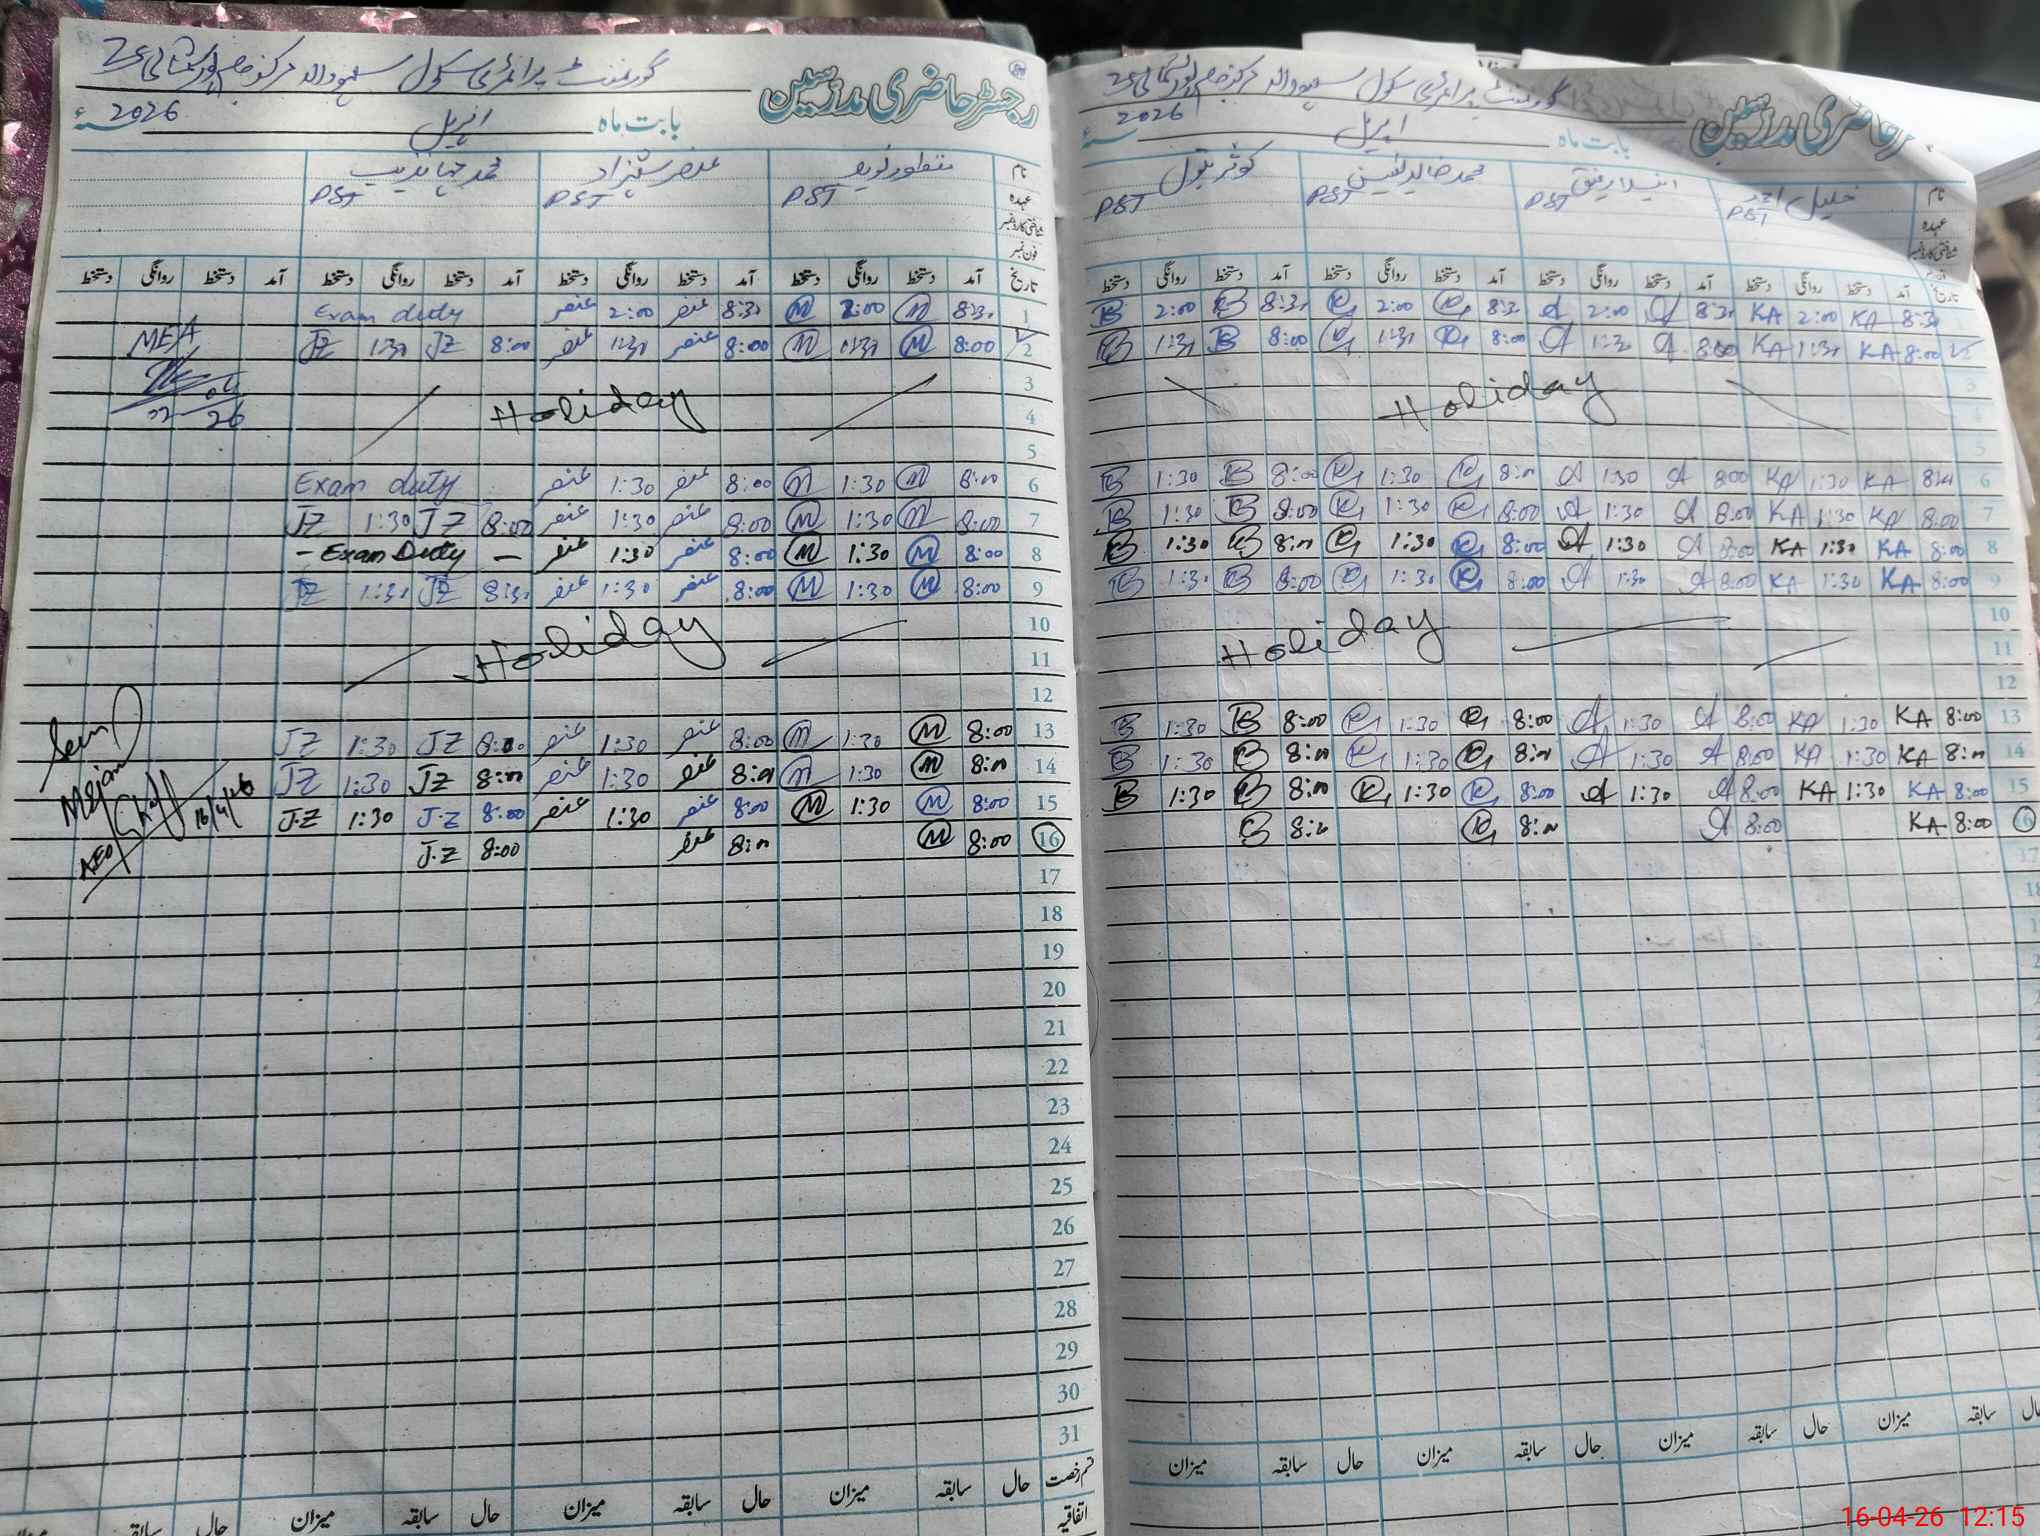 گورنمنٹ پرائمری سکول
رجسٹر حاضری مدرسین
بابت ماہ اپریل 2026ء
نام منظور نوید عنصر شہزاد محمد جہانزیب
عہدہ PST PST PST
شناختی کارڈ نمبر
فون نمبر
تاریخ آمد دستخط روانگی دستخط آمد دستخط روانگی دستخط آمد دستخط روانگی دستخط آمد دستخط روانگی دستخط
1 8:30 M 2:00 M 8:30 عنصر 2:00 عنصر Exam duty
2 8:00 M 1:30 M 8:00 عنصر 1:30 عنصر 8:00 JZ 1:30 JZ MEA
3
4 Holiday
02 04 26
5
6 8:00 M 1:30 M 8:00 عنصر 1:30 عنصر Exam duty
7 8:00 M 1:30 M 8:00 عنصر 1:30 عنصر 8:00 JZ 1:30 JZ
8 8:00 M 1:30 M 8:00 عنصر 1:30 عنصر - Exam Duty -
9 8:00 M 1:30 M 8:00 عنصر 1:30 عنصر 8:30 JZ 1:30 JZ
10
11 Holiday
12
13 8:00 M 1:30 M 8:00 عنصر 1:30 عنصر 8:00 JZ 1:30 JZ
14 8:00 M 1:30 M 8:00 عنصر 1:30 عنصر 8:00 JZ 1:30 JZ
15 8:00 M 1:30 M 8:00 عنصر 1:30 عنصر 8:00 J.Z 1:30 J.Z
16/4/26
AEO
16 8:00 M 8:00 عنصر 8:00 J.Z
17
18
19
20
21
22
23
24
25
26
27
28
29
30
31
قسم رخصت حال سابقہ میزان حال سابقہ میزان حال سابقہ میزان حال سابقہ میزان
اتفاقیہ
گورنمنٹ پرائمری سکول
حاضری مدرسین
بابت ماہ اپریل 2026ء
نام خلیل احمد انیلا رفیق محمد خالد کوثر بتول
عہدہ PST PST PST PST
شناختی کارڈ نمبر
تاریخ آمد دستخط روانگی دستخط آمد دستخط روانگی دستخط آمد دستخط روانگی دستخط آمد دستخط روانگی دستخط
8:30 KA 2:00 KA 8:30 A 2:00 A 8:30 K 2:00 K 8:30 B 2:00 B
8:00 KA 1:30 KA 8:00 A 1:30 A 8:00 K 1:30 K 8:00 B 1:30 B
3
4 Holiday
5
6 8:00 KA 1:30 KA 8:00 A 1:30 A 8:00 K 1:30 K 8:00 B 1:30 B
7 8:00 KA 1:30 KA 8:00 A 1:30 A 8:00 K 1:30 K 8:00 B 1:30 B
8 8:00 KA 1:30 KA 8:00 A 1:30 A 8:00 K 1:30 K 8:00 B 1:30 B
9 8:00 KA 1:30 KA 8:00 A 1:30 A 8:00 K 1:30 K 8:00 B 1:30 B
10
11 Holiday
12
13 8:00 KA 1:30 KA 8:00 A 1:30 A 8:00 K 1:30 K 8:00 B 1:30 B
14 8:00 KA 1:30 KA 8:00 A 1:30 A 8:00 K 1:30 K 8:00 B 1:30 B
15 8:00 KA 1:30 KA 8:00 A 1:30 A 8:00 K 1:30 K 8:00 B 1:30 B
6 8:00 KA 8:00 A 8:00 K 8:00 B
17
18
حال سابقہ میزان حال سابقہ میزان حال سابقہ میزان حال سابقہ میزان
16-04-26 12:15